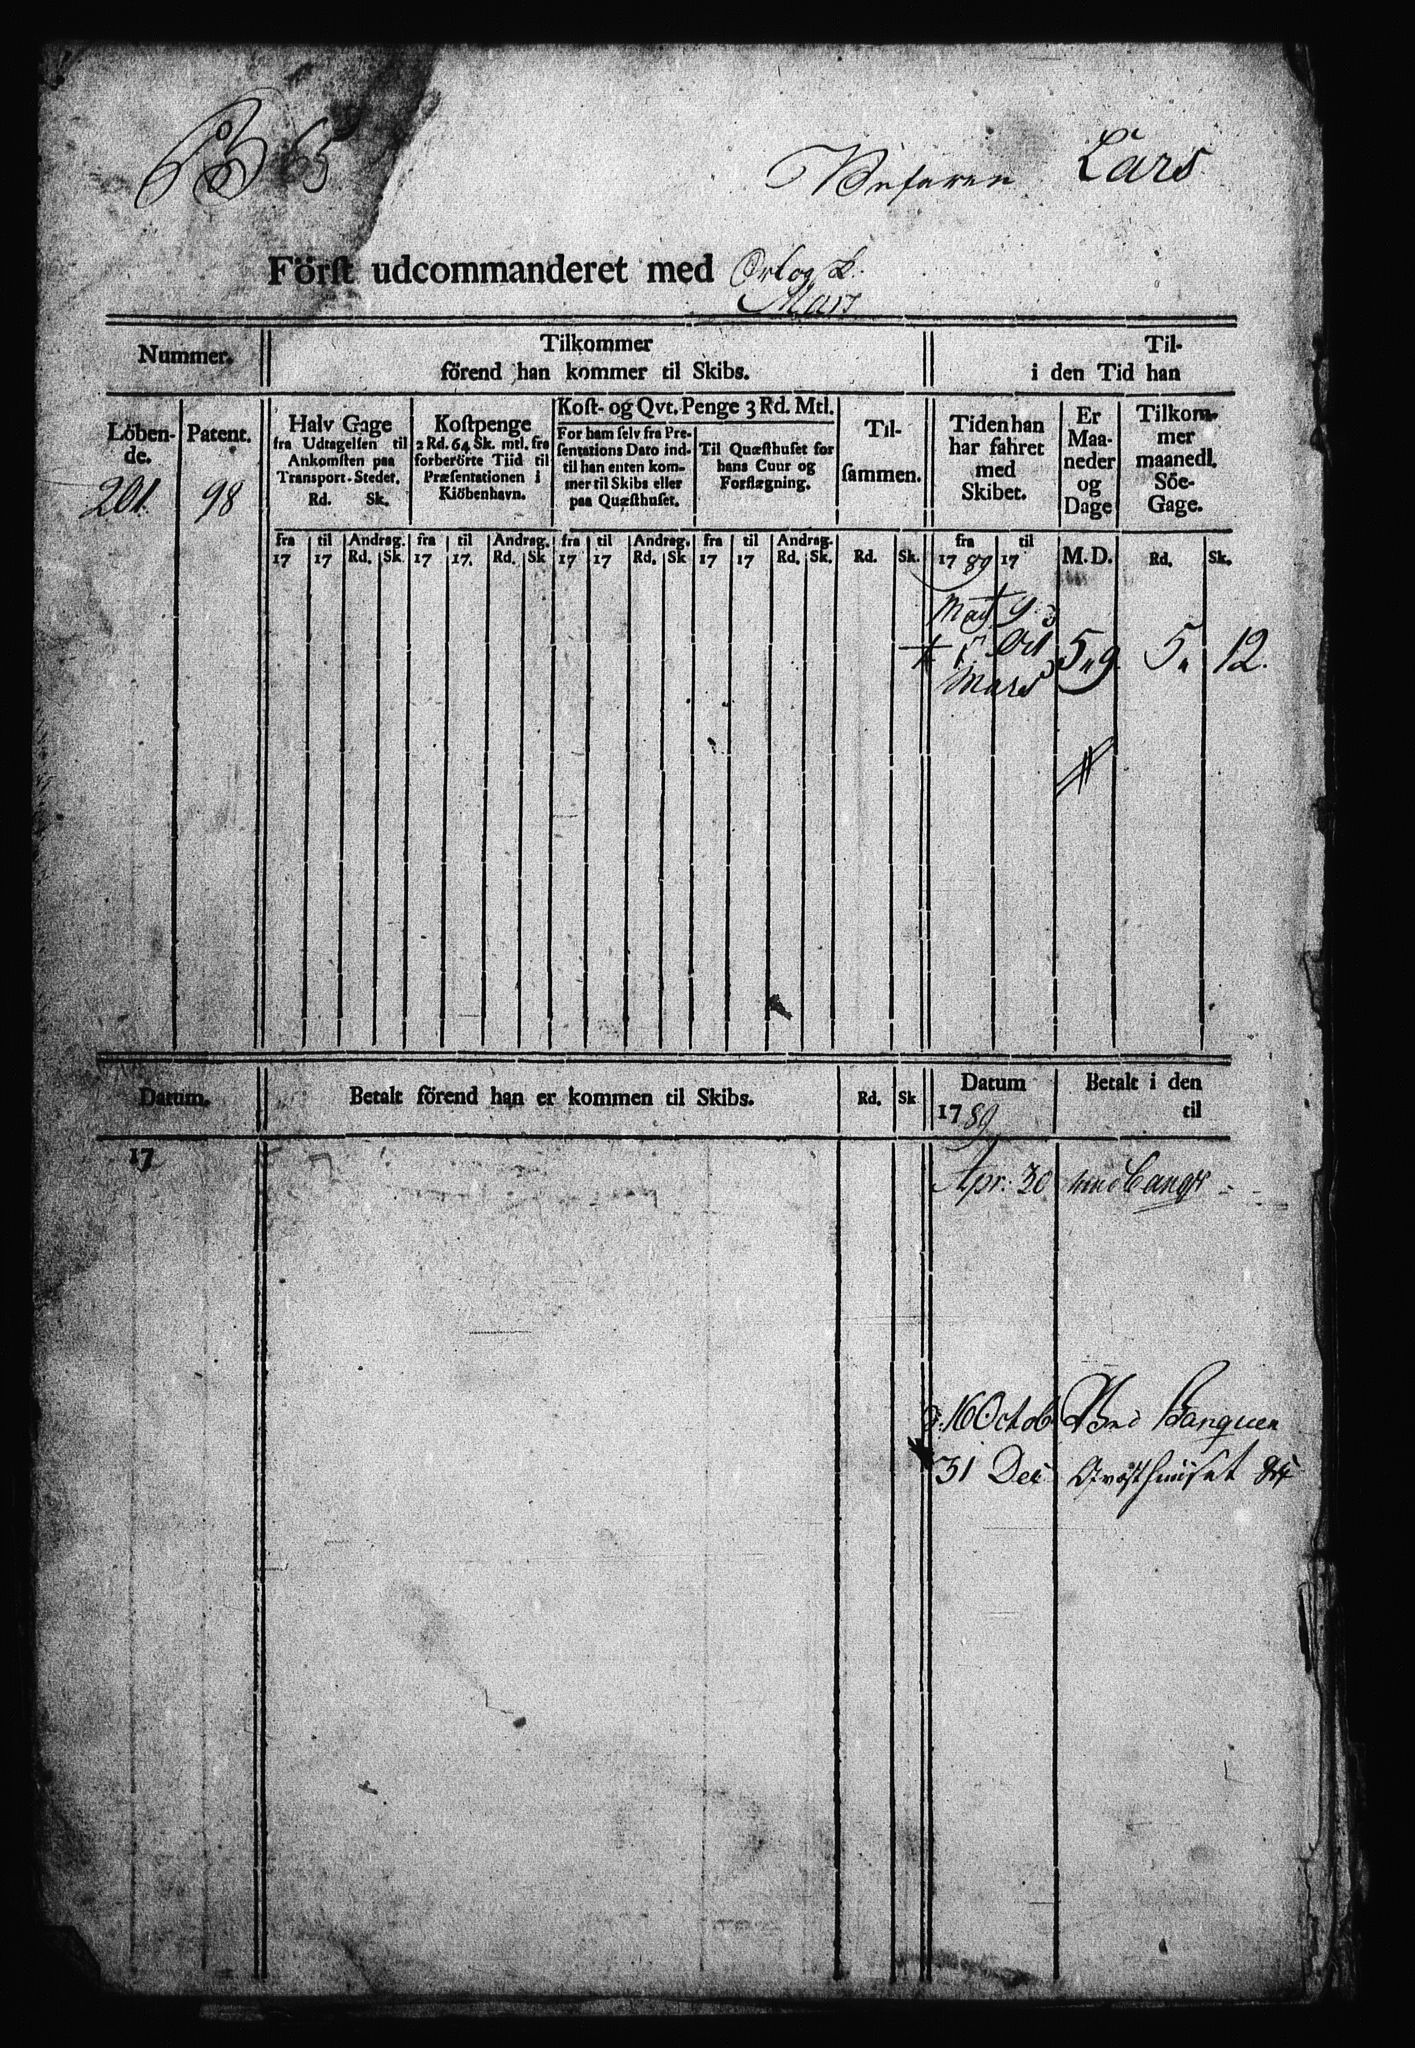 Lars
Först udcommanderet med Orlog S.
Mars
Nummer.
Tilkommer
förend han kommer til Skibs.
Til-
i den Tid han
Löben-
de.
Patent.
Halv Gage
fra Udtagelsen til
Ankomsten paa
Transport-Stedet.
Rd. Sk.
Kostpenge
2 Rd. 64 Sk. mtl. fra
forberörte Tiid til
Præsentationen i
Kiöbenhavn.
Kost- og Qvt. Penge 3 Rd. Mtl.
For ham selv fra Præ-
sentations Dato ind-
til han enten kom-
mer til Skibs eller
paa Quæsthuset.
Til Quæsthuset for
hans Cuur og
Forflægning.
Til-
sammen.
Tiden han
har fahret
med
Skibet.
Er
Maa-
neder
og
Dage
Tilkom-
mer
maanedl.
Söe-
Gage.
201. 98
fra til Andrag. fra til Andrag. fra til Andrag. fra til Andrag. fra til
17 17 Rd. Sk. 17 17. Rd. Sk 17 17 Rd. Sk 17 17 Rd. Sk. Rd. Sk. 1789 17 M. D. Rd. Sk.
May 9
1 Oct 5 " 9 5 " 12.
Mars
Datum. Betalt förend han er kommen til Skibs. Rd. Sk Datum Betalt i den
1789 til
17
Apr: 30
d. 16 Octob. Banquen
31 Dec Qvæsthuuset